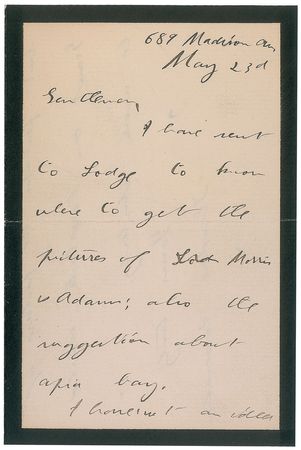 689 Madison Av
May 23d
Gentlemen,
I have sent
to Lodge to know
where to get the
pictures of Morris
& Adams; also the
suggestion about
apia bay.
I haven't an idea